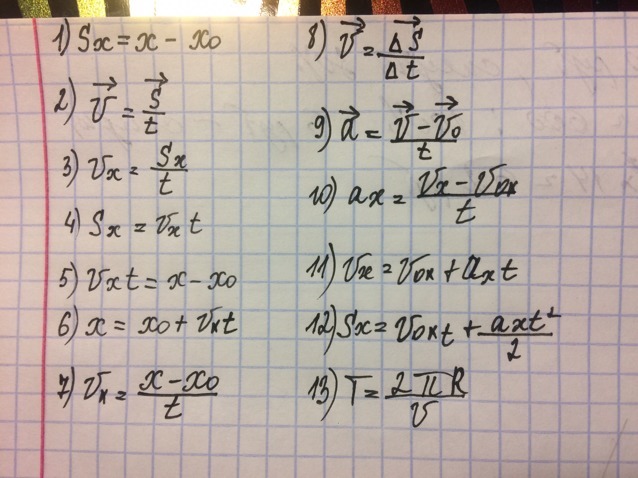 1) Sx = x - x0
2) v⃗ = s⃗/t
3) vx = Sx/t
4) Sx = vx t
5) vxt = x - x0
6) x = x0 + vxt
7) vx = (x - x0)/t
8) v⃗ = Δs⃗/Δt
9) a⃗ = (v⃗ - v⃗0)/t
10) ax = (vx - v0x)/t
11) vx = v0x + axt
12) Sx = v0xt + axt²/2
13) T = 2πR/v